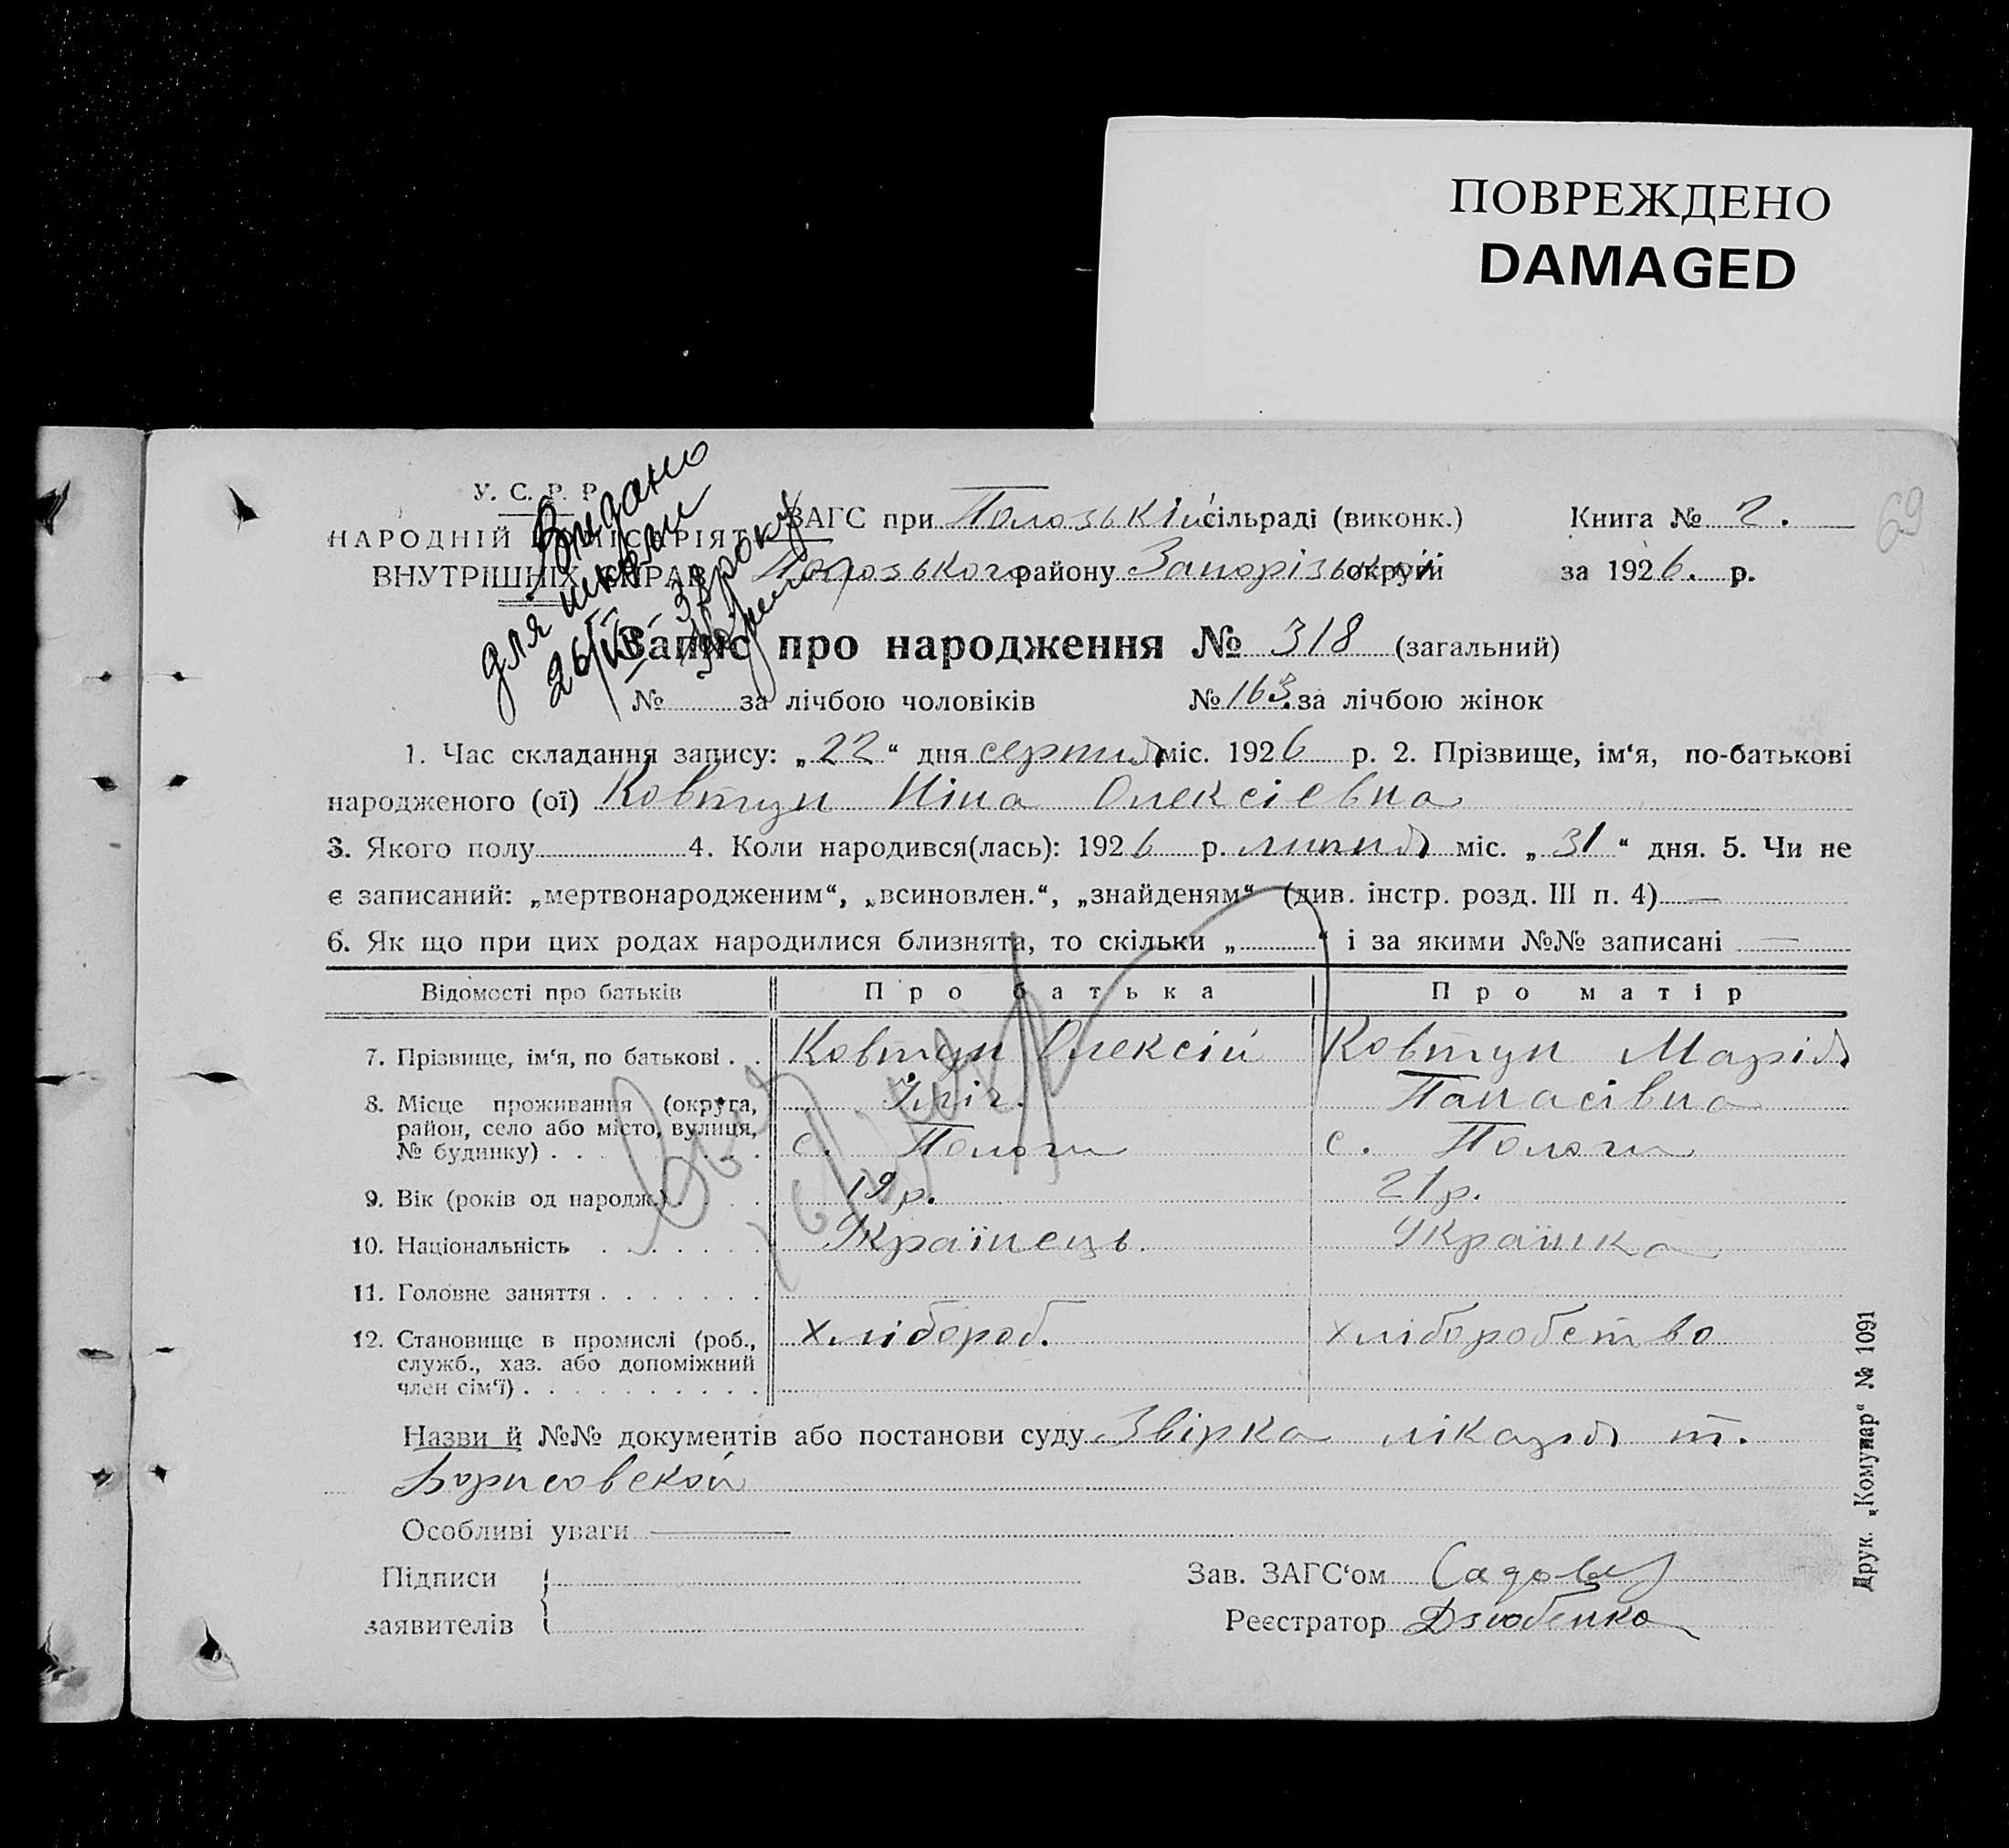 ПОВРЕЖДЕНО
DAMAGED
69
У. С. Р. Р.
НАРОДНІЙ КОМІСАРІЯТ
ВНУТРІШНІХ СПРАВ
Видано
для школи
26/IV – 38 року
ЗАГС при Полозькій сільраді (виконк.)
Полозького району Запорізької округи
Книга № 2.
за 1926. р.
Запис про народження № 318 (загальний)
№ за лічбою чоловіків № 163. за лічбою жінок
1. Час складання запису: „22“ дня серпня міс. 1926 р. 2. Прізвище, ім‘я, по-батькові
народженого (ої) Ковтун Ніна Олексієвна
3. Якого полу 4. Коли народився(лась): 1926 р. липня міс. „31“ дня. 5. Чи не
є записаний: „мертвонародженим“, „всиновлен.“, „знайденям“ (див. інстр. розд. III п. 4) —
6. Як що при цих родах народилися близнята, то скільки „ “ і за якими №№ записані —
Відомості про батьків Про батька Про матір
7. Прізвище, ім‘я, по батькові . . Ковтун Олексій Ковтун Марія
Ілліч. Панасівна
8. Місце проживання (округа,
район, село або місто, вулиця,
№ будинку) . . . с. Пологи с. Пологи
9. Вік (років од народж.) . . . 19 р. 21 р.
10. Національність . . . Українець. Українка
11. Головне заняття . . . . . . .
12. Становище в промислі (роб., хлібороб. хліборобство
служб., хаз. або допоміжний
член сім‘ї) . . . . . . . . . .
Назви й №№ документів або постанови суду Звірка лікаря т.
Борисовской
Особливі уваги —
Підписи
заявителів
Зав. ЗАГС‘ом
Реєстратор Дзюбенко
Друк. „Комунар“ № 1091